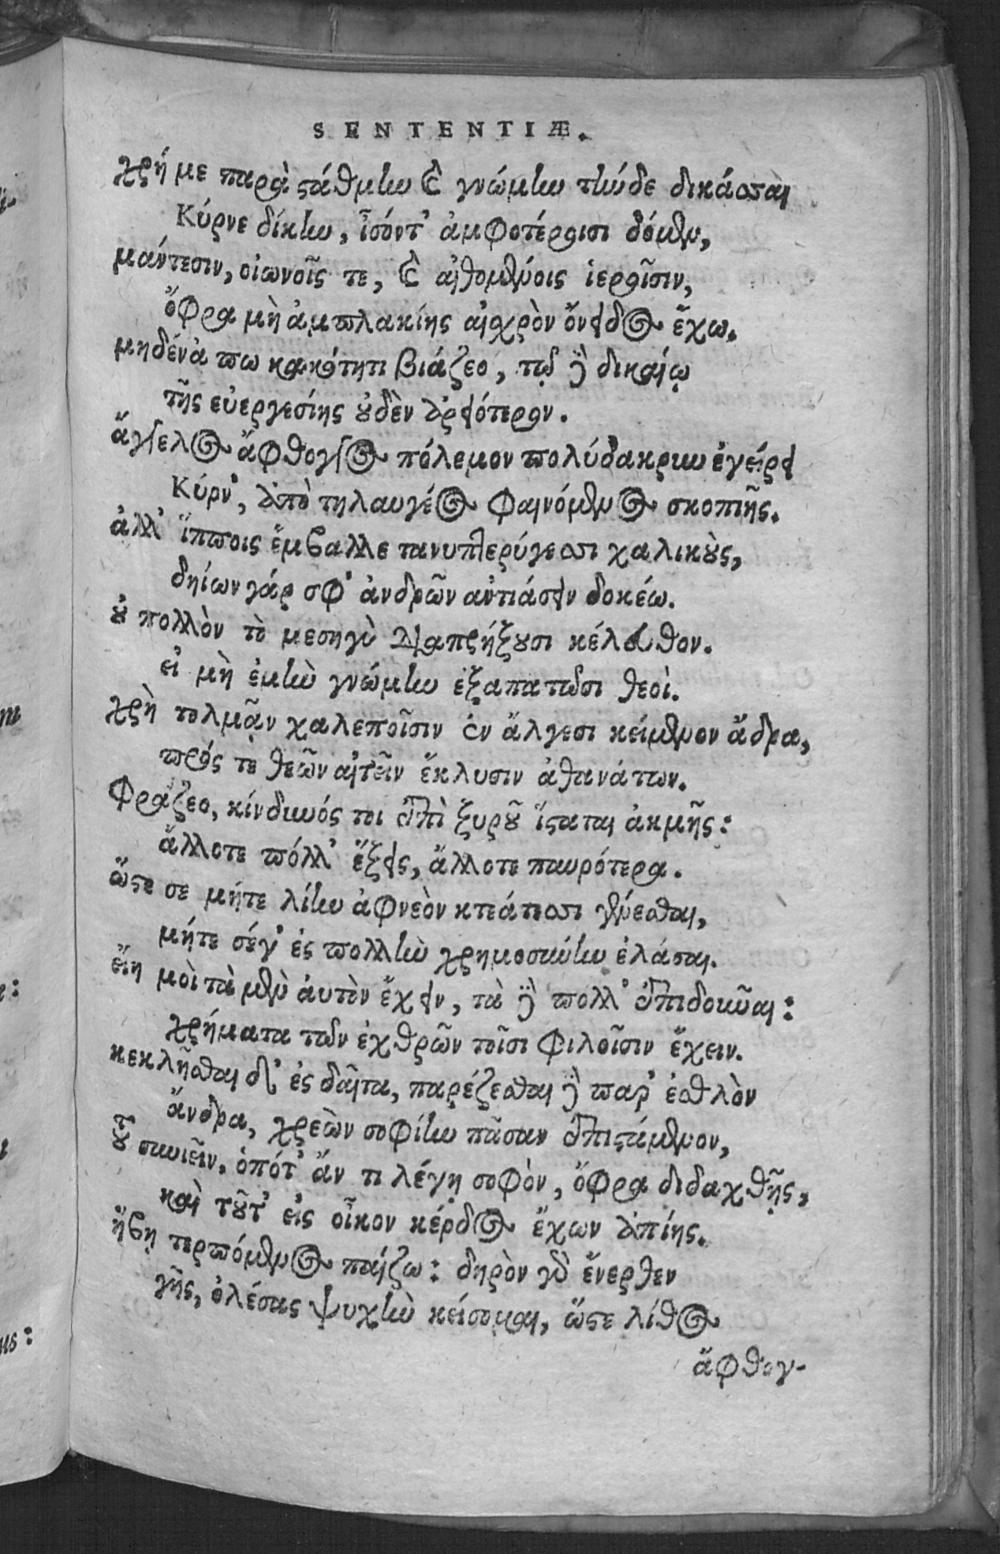 SENTENTIÆ.
χρή με παρὰ στάθμην καὶ γνώμην τήνδε δικάσσαι
Κύρνε δίκην, ἶσόν τ' ἀμφοτέροισι δόμεν,
μάντεσιν, οἰωνοῖς τε, καὶ αἰθομένοις ἱεροῖσιν,
ὄφρα μὴ ἀμπλακίης αἰχρὸν ὄνειδος ἔχω.
μηδένα πω κακότητι βιάζεο, τῷ δὲ δικαίῳ
τῆς εὐεργεσίης οὐδὲν ἀρειότερον.
ἄγγελος ἄφθογγος πόλεμον πολύδακρυν ἐγείρει
Κύρν', ἀπὸ τηλαυγέος φαινόμενος σκοπιῆς.
ἀλλ' ἵπποις ἔμβαλλε τανυπτερύγεσσι χαλινοὺς,
δηΐων γάρ σφ' ἀνδρῶν ἀντιάσειν δοκέω.
οὐ πολλὸν τὸ μεσηγὺ διαπρήξουσι κέλευθον.
εἰ μὴ ἐμὴν γνώμην ἐξαπατῶσι θεοὶ.
χρὴ τολμᾷν χαλεποῖσιν ἐν ἄλγεσι κείμενον ἄνδρα,
πρός τὲ θεῶν αἰτεῖν ἔκλυσιν ἀθανάτων.
Φράζεο, κίνδυνός τοι ἐπὶ ξυροῦ ἵσταται ἀκμῆς:
ἄλλοτε πόλλ' ἕξεις, ἄλλοτε παυρότερα.
ὥστε σε μήτε λίην ἀφνεὸν κτεάτεσσι γενέσθαι,
μήτε σέγ' ἐς πολλὴν χρημοσύνην ἐλάσαι.
εἴη μοὶ τὰ μὲν ἀυτὸν ἔχειν, τὰ δὲ πολλ' ἐπιδοῦναι:
χρήματα τῶν ἐχθρῶν τοῖσι φιλοῖσιν ἔχειν.
κεκλῆσθαι δ' ἐς δαῖτα, παρέζεσθαι δὲ παρ' ἐσθλὸν
ἄνδρα, χρεὼν σοφίην πᾶσαν ἐπιστάμενον,
τοῦ συνιεῖν, ὁπότ' ἄν τι λέγῃ σοφὸν, ὄφρα διδαχθῇς,
καὶ τοῦτ' εἰς οἶκον κέρδος ἔχων ἀπίῃς.
ἥβῃ τερπόμενος παίζω: δηρὸν γὰρ ἔνερθεν
γῆς, ὀλέσας ψυχὴν κείσομαι, ὥστε λίθος
ἄφθογ-